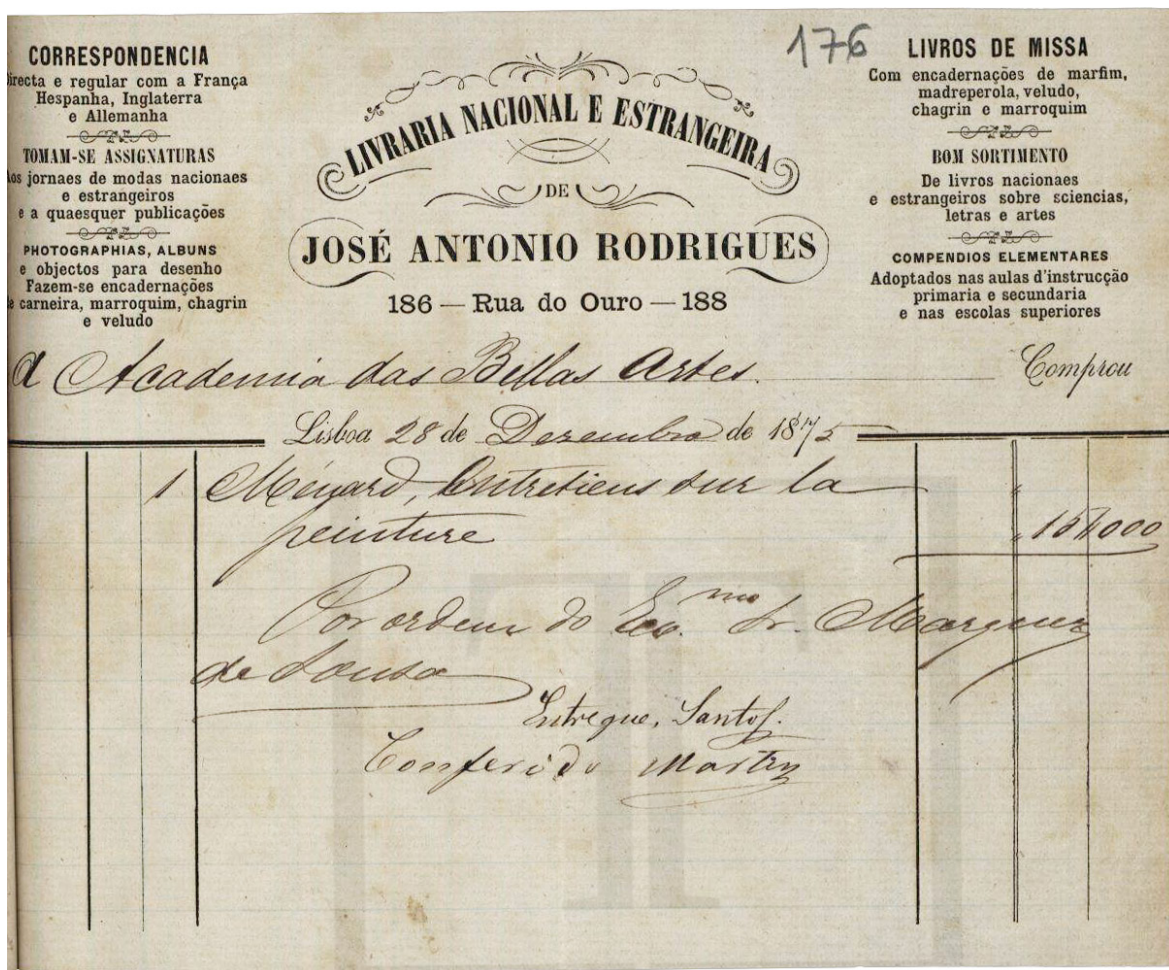 176
CORRESPONDENCIA
Directa e regular com a França
Hespanha, Inglaterra
e Allemanha
TOMAM-SE ASSIGNATURAS
Aos jornaes de modas nacionaes
e estrangeiros
e a quaesquer publicações
PHOTOGRAPHIAS, ALBUNS
e objectos para desenho
Fazem-se encadernações
de carneira, marroquim, chagrin
e veludo
LIVRARIA NACIONAL E ESTRANGEIRA
DE
JOSÉ ANTONIO RODRIGUES
186 — Rua do Ouro — 188
LIVROS DE MISSA
Com encadernações de marfim,
madreperola, veludo,
chagrin e marroquim
BOM SORTIMENTO
De livros nacionaes
e estrangeiros sobre sciencias,
letras e artes
COMPENDIOS ELEMENTARES
Adoptados nas aulas d'instrucção
primaria e secundaria
e nas escolas superiores
A Academia das Bellas Artes. Comprou
Lisboa 28 de Dezembro de 1875
1 Ménard, Entretiens sur la
peinture 15$000
Por ordem do Exmo. Sr. Marquez
de Sousa
Entregue, Santos.
Conferido Martins